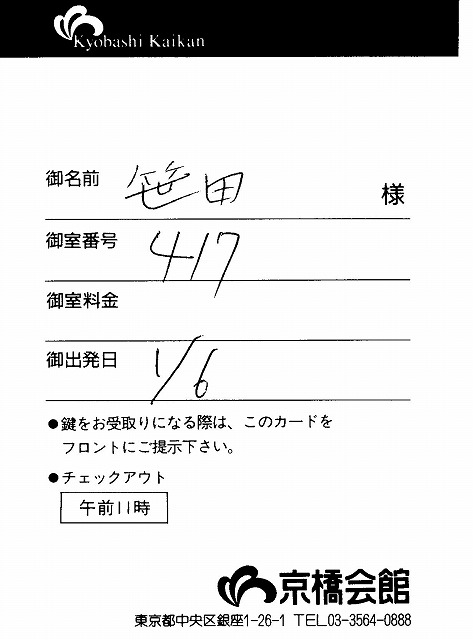 Kyobashi Kaikan
御名前 笹田 様
御室番号 417
御室料金
御出発日 1/6
●鍵をお受取りになる際は、このカードを
フロントにご提示下さい。
●チェックアウト
午前11時
京橋会館
東京都中央区銀座1-26-1 TEL.03-3564-0888